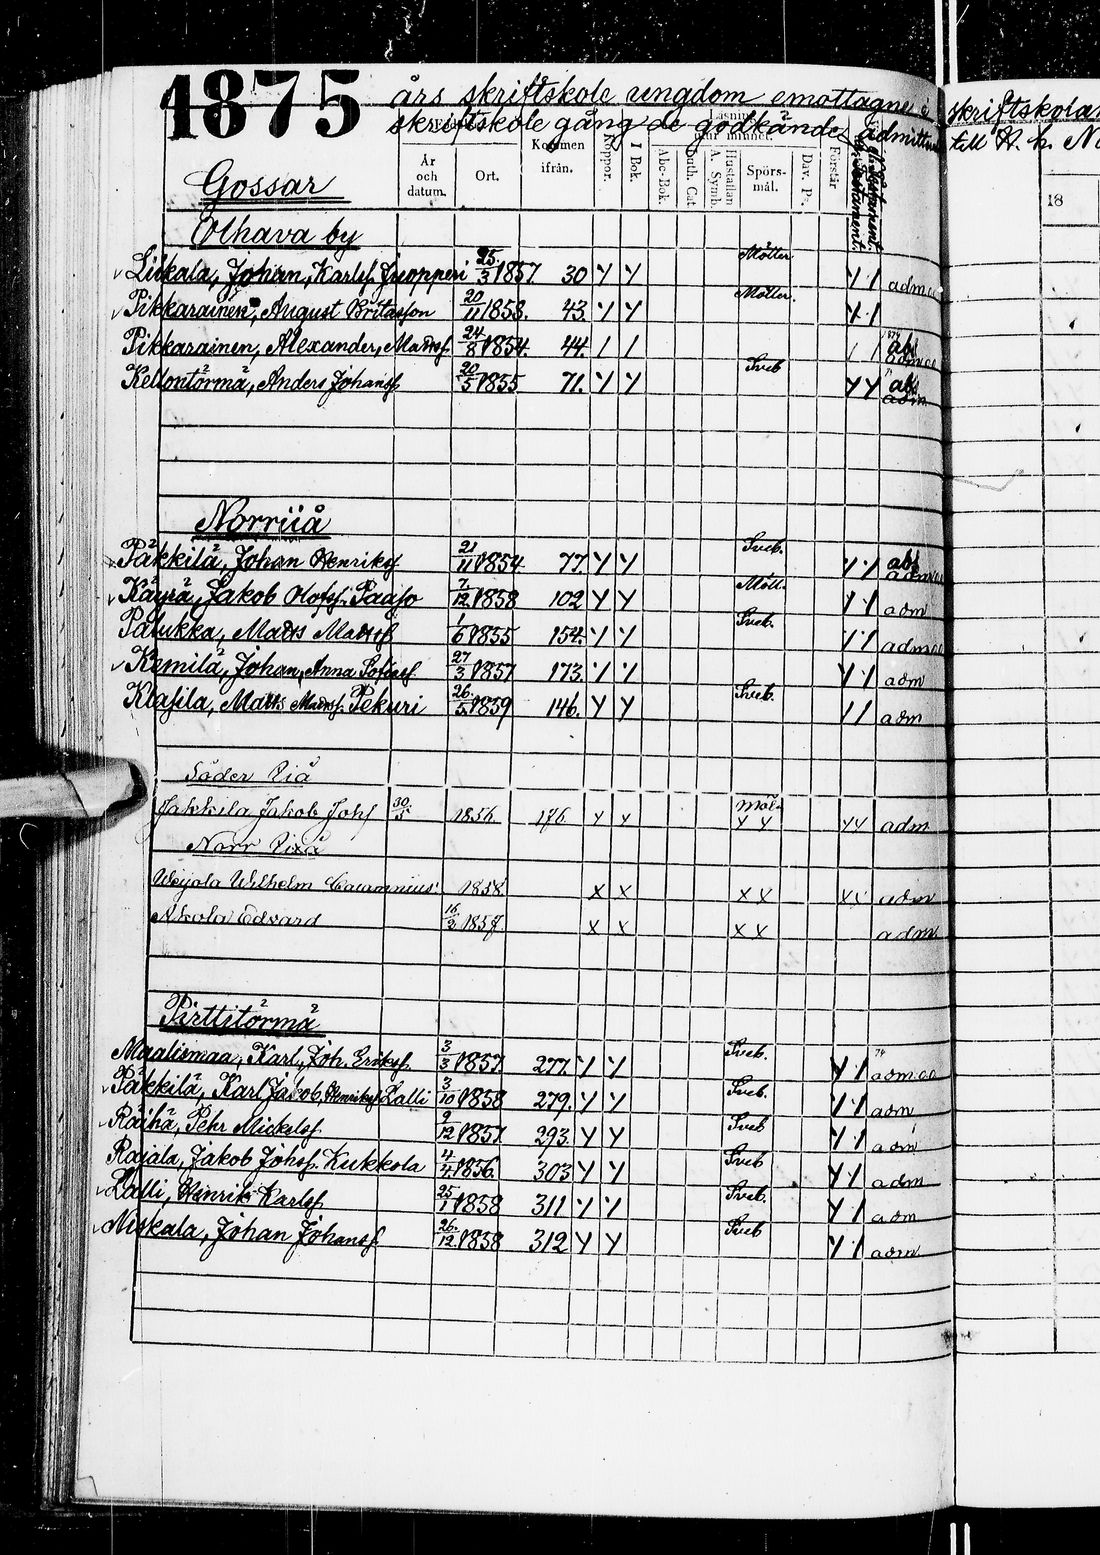 1875 års skriftskole ungdom emottagne i skriftskolan
skriftskole gång de godkände, admittera till H. h. N
Kommen ifrån. Koppor. I Bok. Abc-Bok. Luth. Cat. A. Symb. Hustaflan Spörs-mål. Dav. Ps. Förstår
År och datum. Ort. 18
Gossar
Olhava by
Liikala, Johan, Karlsf. Juopperi 25/3 1857. 30 Y Y Mölter Y 1
Pikkarainen, August Britasson 20/11 1858. 43. Y Y Mölter. Y 1
Pikkarainen, Alexander, Madsf. 24/8 1854. 44. 1 1 1 1 abs
Kellontörmä, Anders Johansf. 20/5 1855 71. Y Y Sveb Y Y abs adm
Norriiå
Päkkilä, Johan Henriksf 21/11 1854 77. Y Y Sveb. Y Y abs
Käyrä, Jakob Olofsf. Paaso 7/12 1858 102 Y Y Möll. Y 1 adm
Patukka, Mads Madsf 1/6 1855 154. Y Y Sveb. Y 1
Kemilä, Johan, Anna 27/3 1857 173. Y Y Y 1 adm
Klasila, Matts Madsf. Pekuri 26./5. 1859 146. Y Y Sveb. 1 1 adm
Söder Iiå
Jakkila Jakob Johsf 30/5 1856 176 Y Y Möl. Y Y Y Y adm
Norr Iiå
Weijola Wilhelm 1858 X X X X adm
Akola Edvard 16/2 1857. X X X X adm
Pirttitörmä
Maalismaa, Karl, Joh. Eriksf. 3/3 1857. 277. Y Y Sveb. Y 1
Päkkilä, Karl Jakob, Henriksf Lalli 3/10 1858 279. Y Y Sveb. Y 1 adm
Räihä, Pehr Mickelsf. 9/12 1857 293. Y Y Sveb Y 1 adm
Rajala, Jakob Johsf. Kukkola 4/4 1856. 303 Y Y Sveb Y 1 adm
Lalli, Hinrik Karlsf. 25/1 1858 311 Y Y Sveb. Y 1 adm
Niskala, Johan Johansf. 26./12. 1858 312 Y Y Sveb Y 1 adm